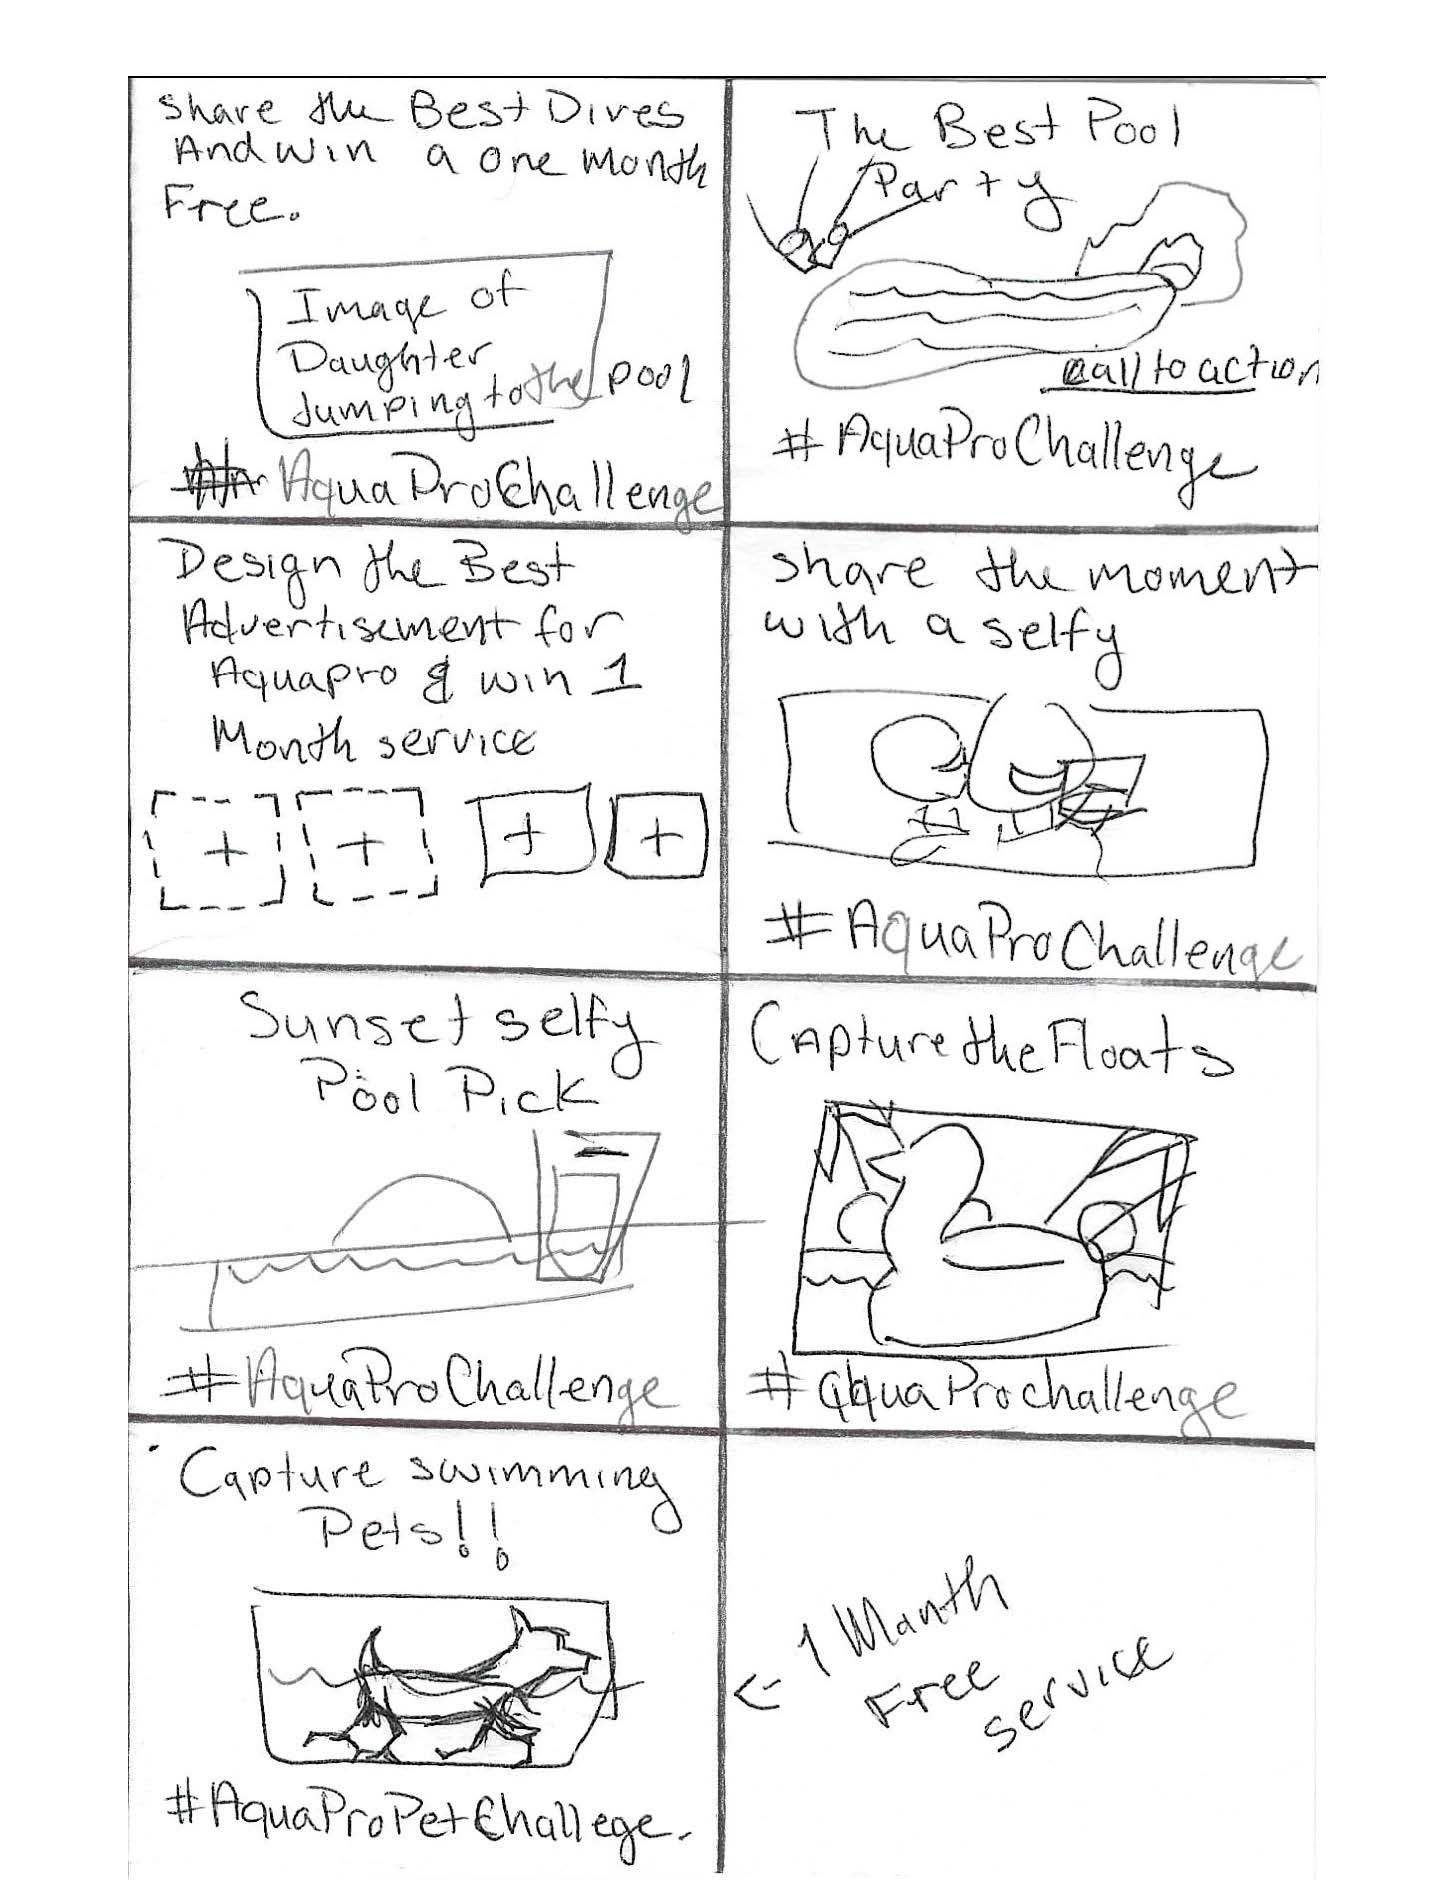 share the Best Dives
And win a one month
Free.
Image of
Daughter
Jumping to the pool
#AquaProChallenge
The Best Pool
Party
call to action
#AquaProChallenge
Design the Best
Advertisement for
Aquapro & win 1
Month service
+ + + +
share the moment
with a selfy
#AquaProChallenge
Sunset selfy
Pool Pick
#AquaProChallenge
Capture the Floats
#aquaProchallenge
Capture swimming
Pets!!
#AquaProPetChallege.
<- 1 Manth
Free
service